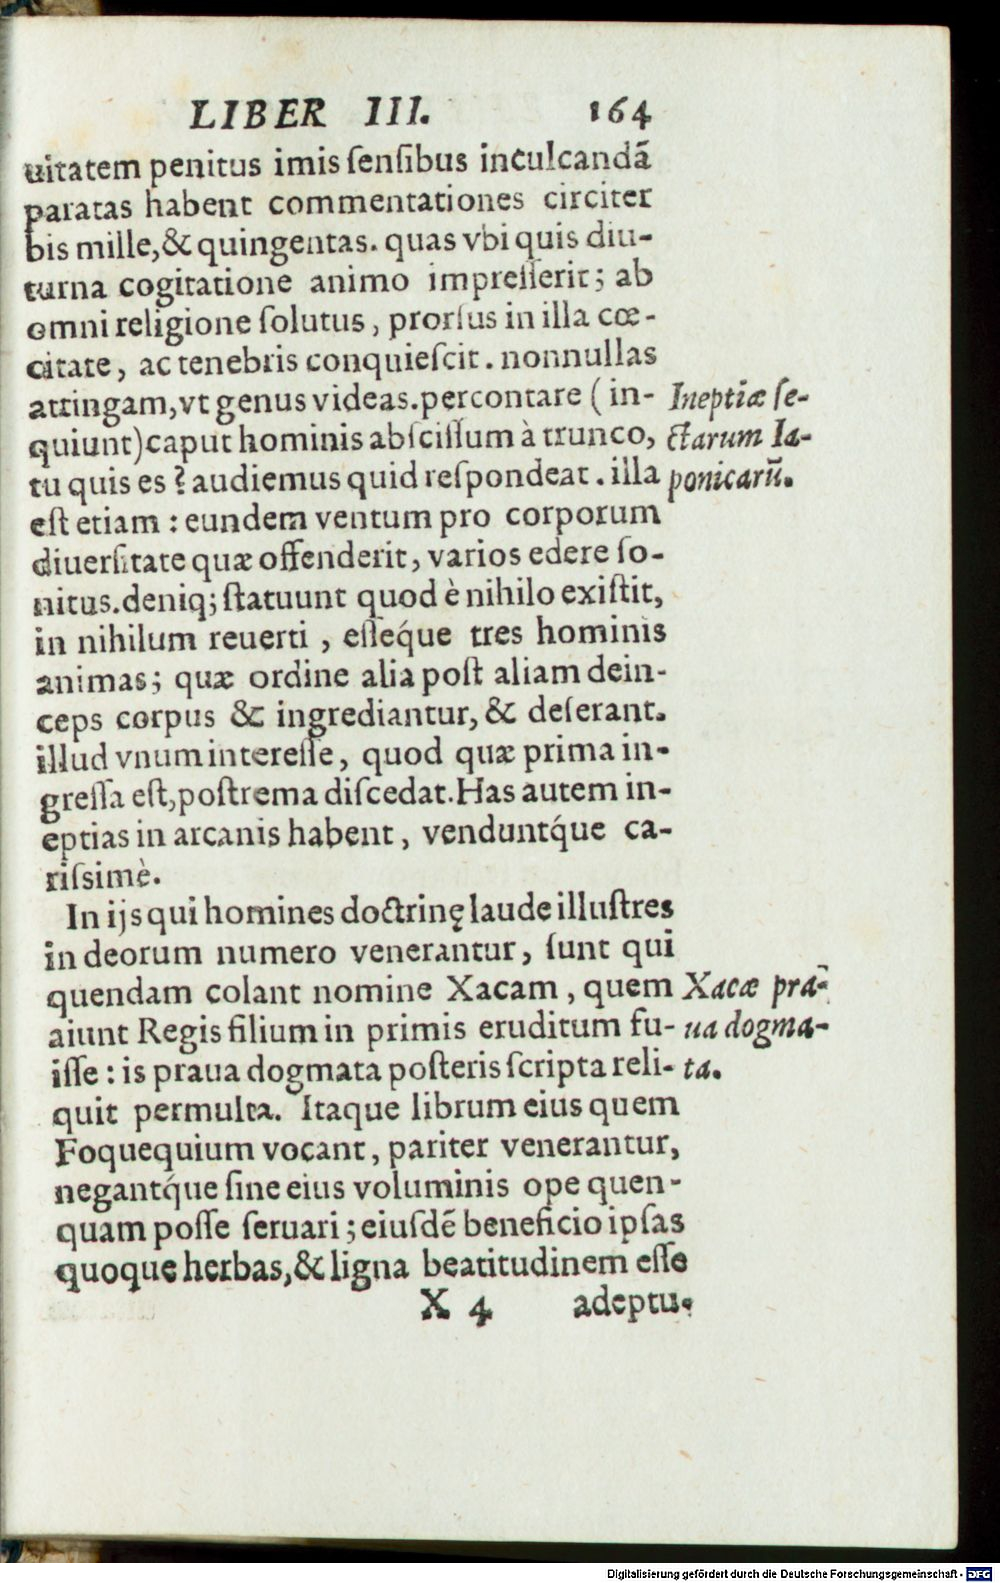 LIBER III. 164
uitatem penitus imis ſenſibus inculcandã
paratas habent commentationes circiter
bis mille, & quingentas. quas vbi quis diu-
turna cogitatione animo impreſſerit; ab
omni religione ſolutus, prorſus in illa cœ-
citate, ac tenebris conquieſcit. nonnullas
attingam, vt genus videas. percontare ( in-
quiunt) caput hominis abſciſſum à trunco,
tu quis es? audiemus quid reſpondeat. illa
eſt etiam: eundem ventum pro corporum
diuerſitate quæ offenderit, varios edere ſo-
nitus. deniq; ſtatuunt quod è nihilo exiſtit,
in nihilum reuerti, eſſeq́ue tres hominis
animas; quæ ordine alia poſt aliam dein-
ceps corpus & ingrediantur, & deſerant.
illud vnum intereſſe, quod quæ prima in-
greſſa eſt, poſtrema diſcedat. Has autem in-
eptias in arcanis habent, venduntq́ue ca-
riſsimè.
Ineptiæ ſe-
ctarum Ia-
ponicarũ.
In ijs qui homines doctrinę laude illuſtres
in deorum numero venerantur, ſunt qui
quendam colant nomine Xacam, quem
aiunt Regis filium in primis eruditum fu-
iſſe: is praua dogmata poſteris ſcripta reli-
quit permulta. Itaque librum eius quem
Foquequium vocant, pariter venerantur,
negantq́ue ſine eius voluminis ope quen-
quam poſſe ſeruari; eiuſdẽ beneficio ipſas
quoque herbas, & ligna beatitudinem eſſe
Xacæ pra-
ua dogma-
ta.
X 4 adeptu.
Digitalisierung gefördert durch die Deutsche Forschungsgemeinschaft - DFG